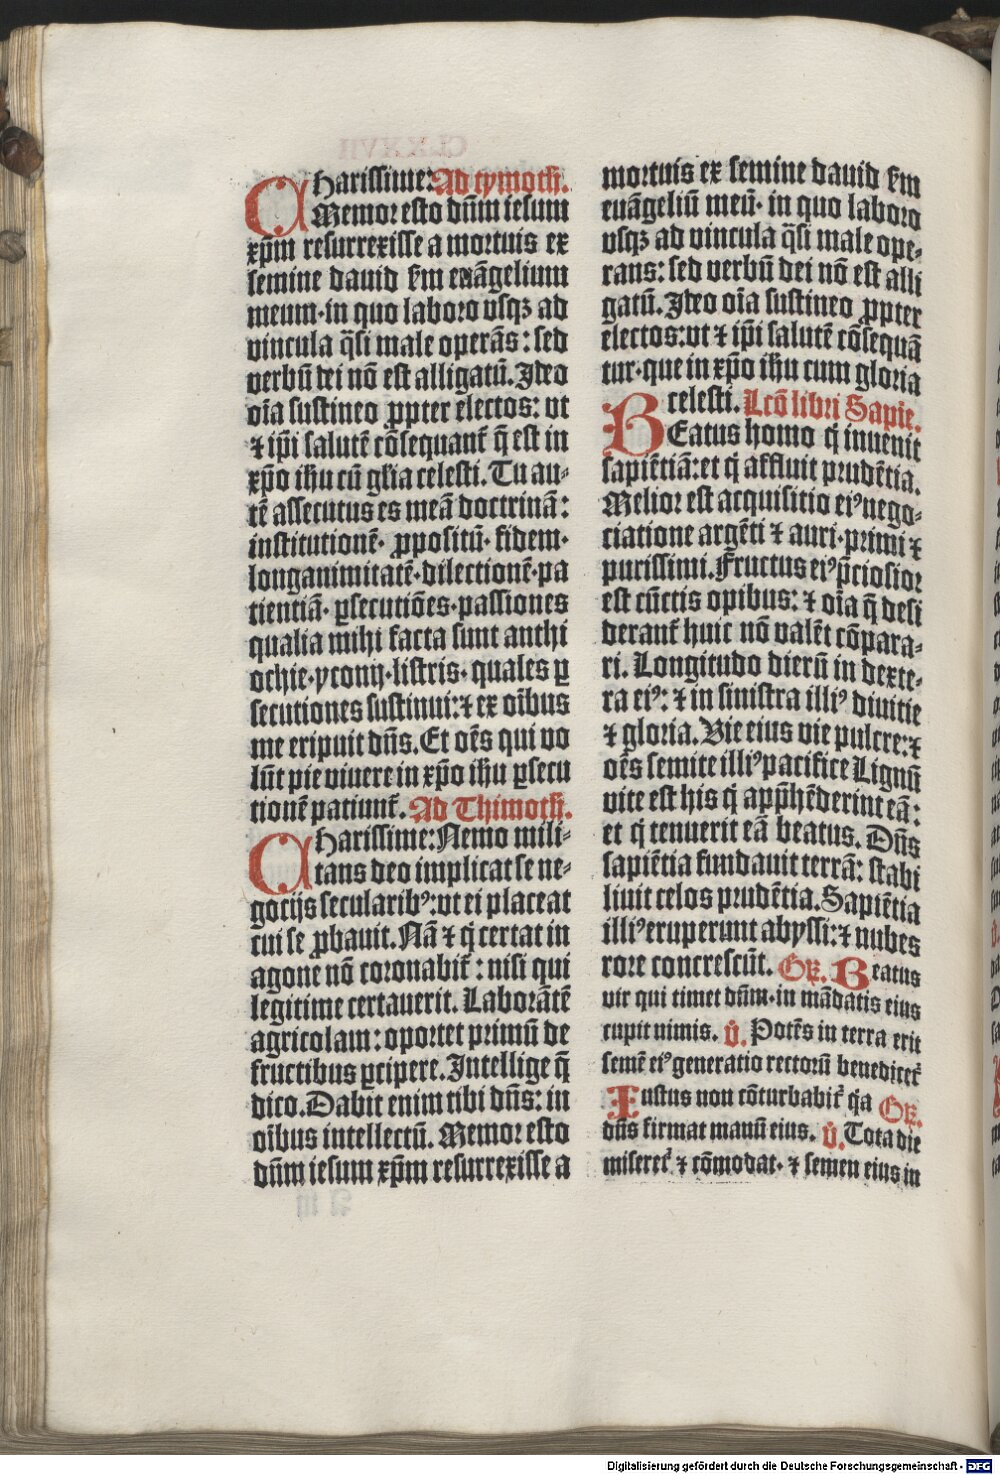 Charissime: Ad tymoth̄.
Memor esto dn̄m iesum
xp̄m resurrexisse a mortuis ex
semine dauid ẜm euāgelium
meum· in quo laboro vsqꝫ ad
vincula q̄si male operās: sed
verbū dei nō est alligatū. Ideo
oīa sustineo ꝓpter electos: vt
⁊ ip̄i salutē cōsequant̄ q̄ est in
xp̄o ih̄u cū gl̄ia celesti. Tu au-
tē assecutus es meā doctrinā:
institutionē· ꝓpositū· fidem·
longanimitatē· dilectionē· pa
tientiā· ꝑsecutiōes· passiones
qualia mihi facta sunt anthi
ochie· yconij· listris· quales ꝑ
secutiones sustinui: ⁊ ex oībus
me eripuit dn̄s. Et oēs qui vo
lūt pie viuere in xp̄o ih̄u ꝑsecu
tionē patiunt̄. Ad Thimoth̄.
Charissime: Nemo mili-
tans deo implicat se ne-
gocijs secularibꝰ: vt ei placeat
cui se ꝓbauit. Nā ⁊ q̇ certat in
agone nō coronabit̄: nisi qui
legitime certauerit. Laborātē
agricolam: oportet primū de
fructibus ꝑcipere. Intellige q̄
dico. Dabit enim tibi dn̄s: in
oībus intellectū. Memor esto
dn̄m iesum xp̄m resurrexisse a
mortuis ex semine dauid ẜm
euāgeliū meū· in quo laboro
vsqꝫ ad vincula q̄si male ope-
rans: sed verbū dei nō est alli
gatū. Ideo oīa sustineo ꝓpter
electos: vt ⁊ ip̄i salutē cōsequā
tur· que in xp̄o ih̄u cum gloria
celesti. Lcō libri Sapie.
BEatus homo q̇ inuenit
sapiētiā: et q̇ affluit prudētia.
Melior est acquisitio eiꝰ nego-
ciatione argēti ⁊ auri· primi ⁊
purissimi. Fructus eiꝰ p̄ciosior
est cūctis opibus: ⁊ oīa q̄ desi
derant̄ huic nō valēt cōpara-
ri. Longitudo dierū in dexte-
ra eiꝰ: ⁊ in sinistra illiꝰ diuitie
⁊ gloria. Vie eius vie pulcre: ⁊
oēs semite illiꝰ pacifice Lignū
vite est his q̇ app̄hēderint eā:
et q̇ tenuerit eā beatus. Dn̄s
sapiētia fundauit terrā: stabi
liuit celos prudētia. Sapiētia
illiꝰ eruperunt abyssi: ⁊ nubes
rore concrescūt. Gr̄. Beatus
vir qui timet dn̄m· in mādatis eius
cupit nimis. v̇. Potēs in terra erit
semē eiꝰ generatio rectorū benedicet̄
Iustus non cōturbabit̄ q̇a Gr̄.
dn̄s firmat manū eius. v̇. Tota die
miseret̄ ⁊ cōmodat· ⁊ semen eius in
Digitalisierung gefördert durch die Deutsche Forschungsgemeinschaft - DFG